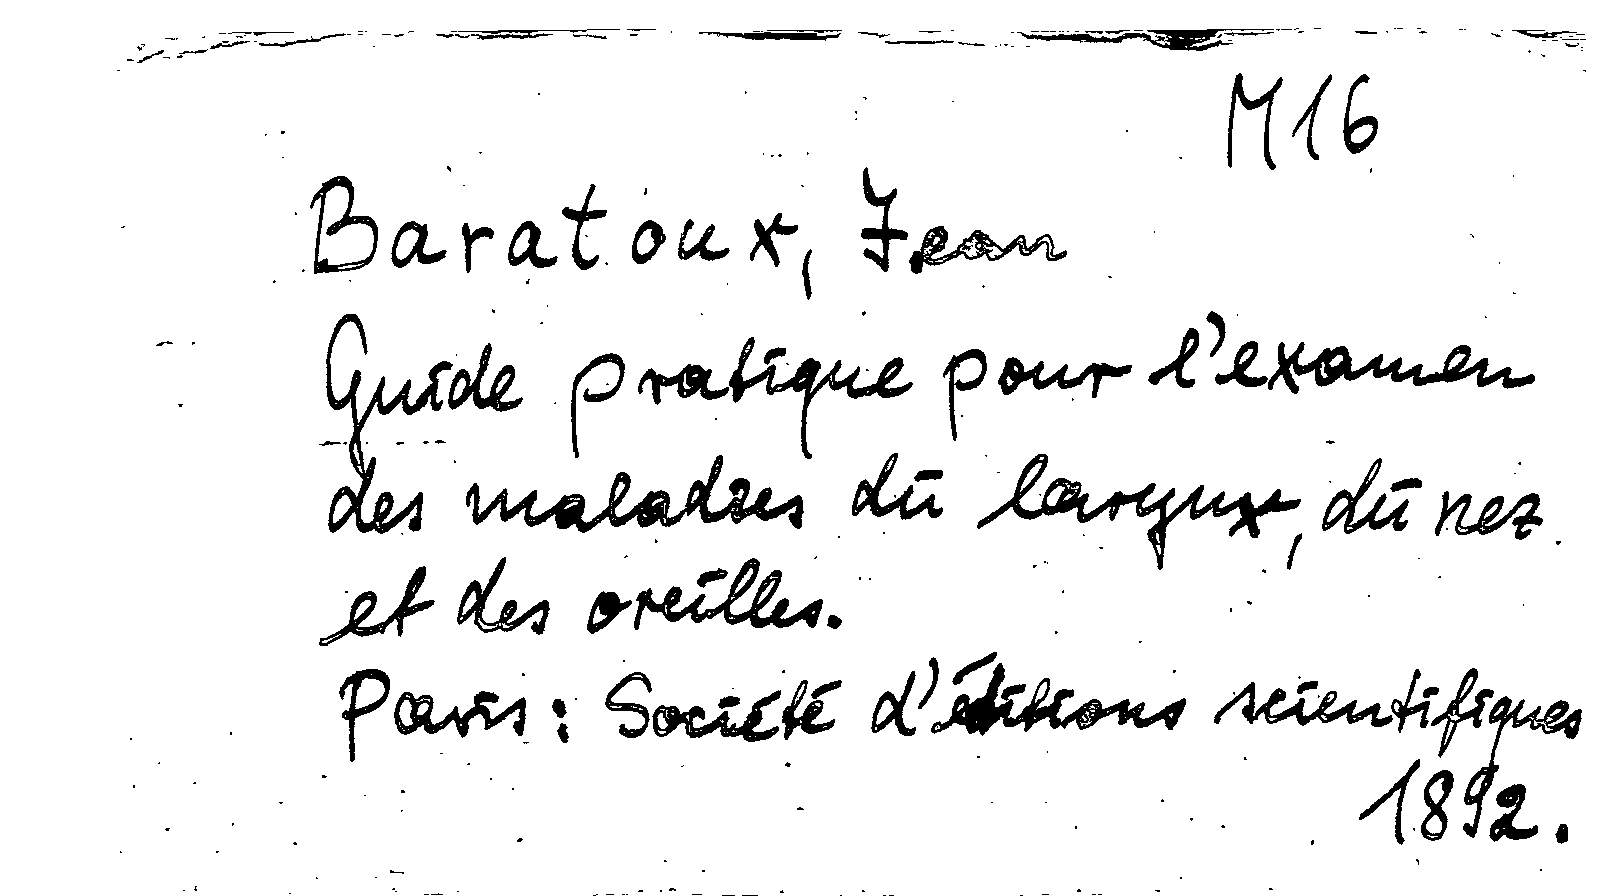 M16
Baratoux, Jean
Guide pratique pour l'examen
des maladies du larynx, du nez
et des oreilles.
Paris: Société d'éditions scientifiques
1892.